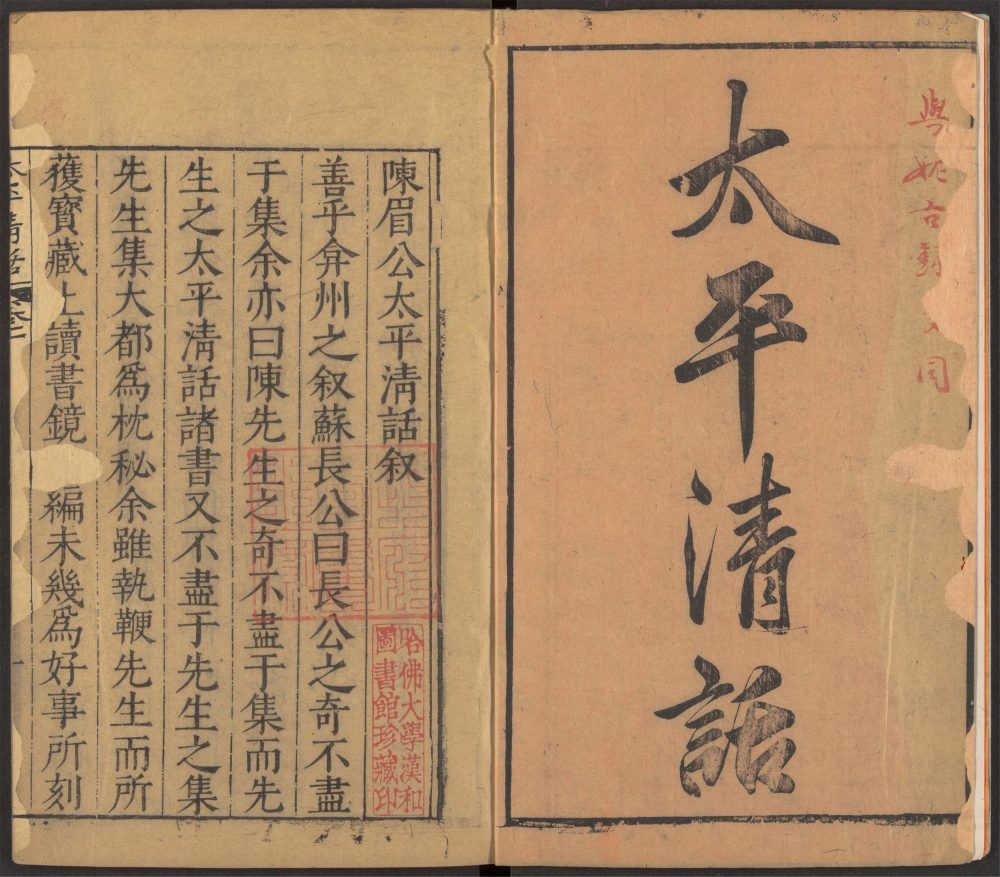 太平清話
與
古
同
陳眉公太平清話叙
善乎弇州之叙蘇長公曰長公之奇不盡
于集余亦曰陳先生之奇不盡于集而先
生之太平清話諸書又不盡于先生之集
先生集大都爲枕秘余雖執鞭先生而所
獲寶藏止讀書鏡 編未幾爲好事所刻
太平清話
哈佛大學漢和
圖書館珍藏印